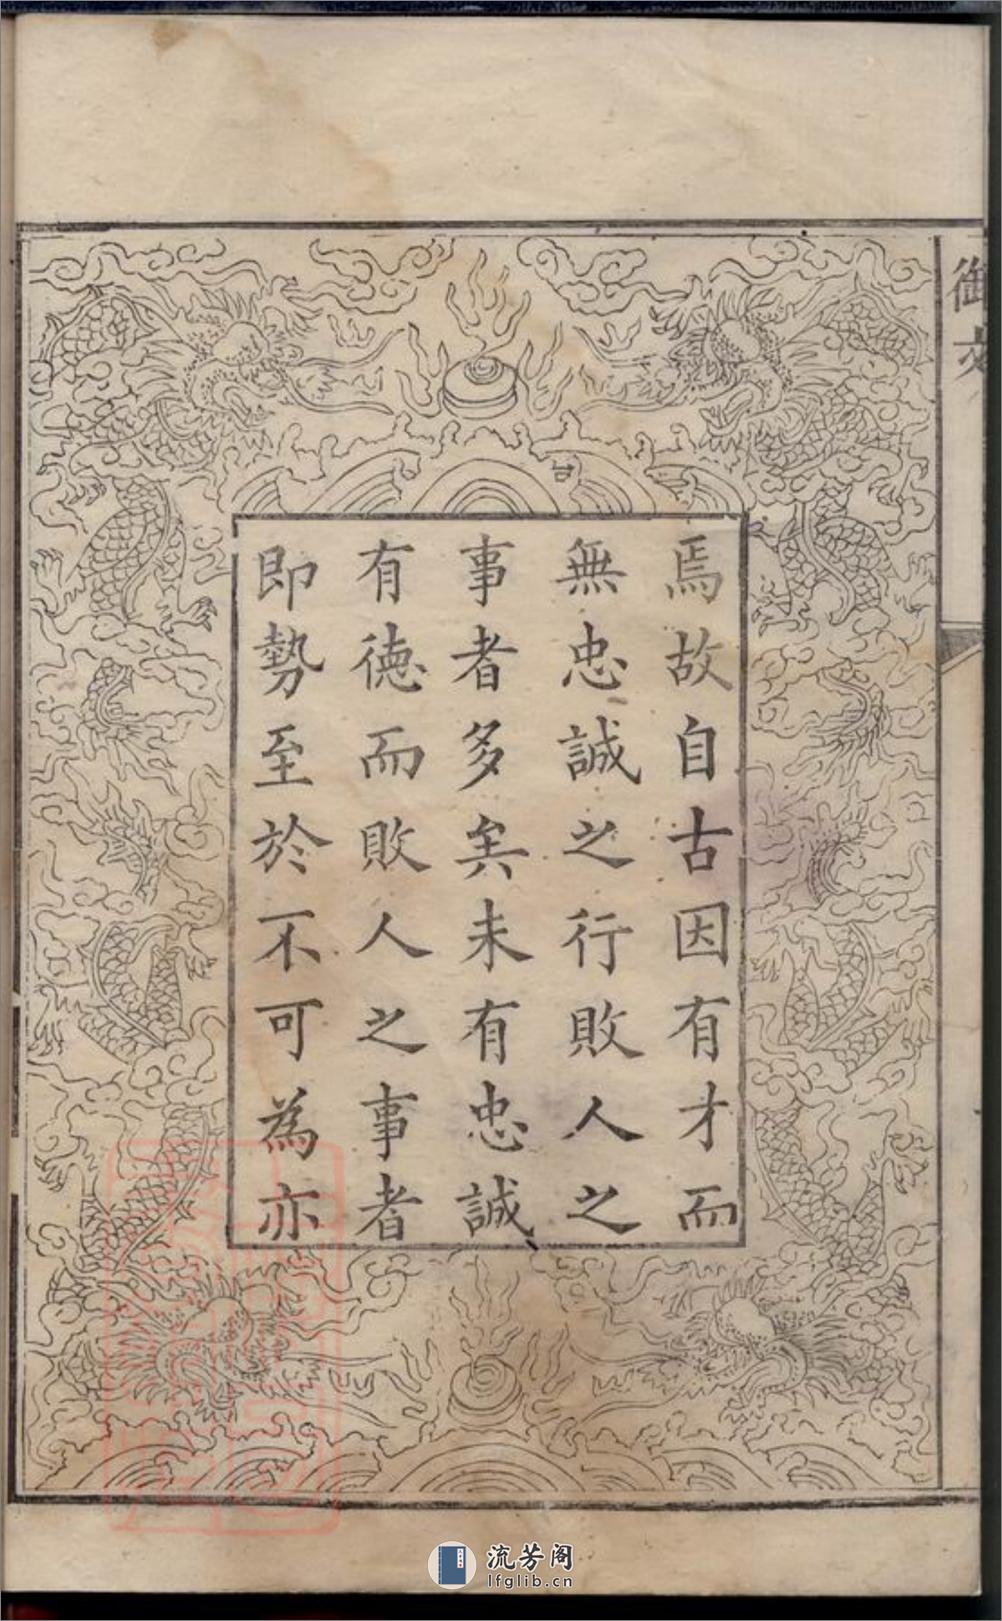 御文
焉故自古因有才而
無忠誠之行敗人之
事者多矣未有忠誠
有徳而敗人之事者
即勢至於不可為亦
流芳阁
lfglib.cn